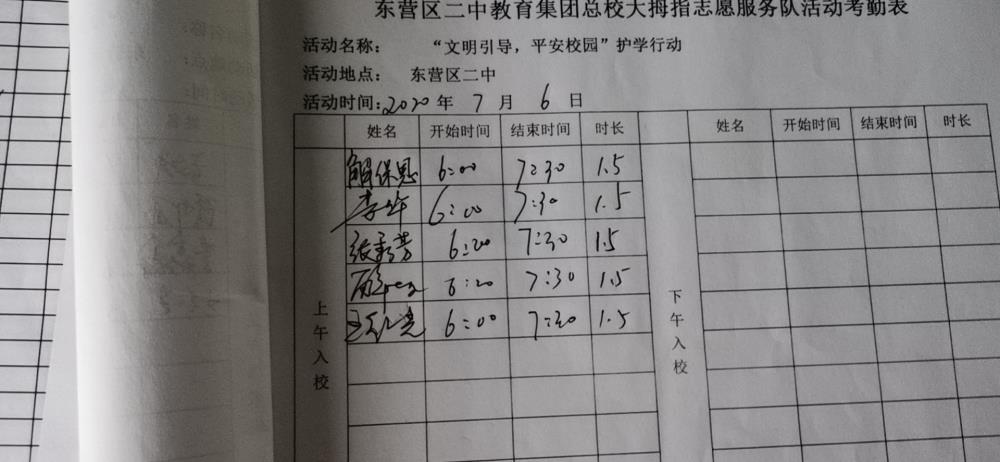 东营区二中教育集团总校大拇指志愿服务队活动考勤表
活动名称： “文明引导，平安校园”护学行动
活动地点： 东营区二中
活动时间:2020年 7 月 6 日
姓名 开始时间 结束时间 时长 姓名 开始时间 结束时间 时长
上午入校
解保恩 6:00 7:30 1.5
6:00 7:30 1.5
张秀芳 6:00 7:30 1.5
6:20 7:30 1.5
6:00 7:30 1.5
下午入校